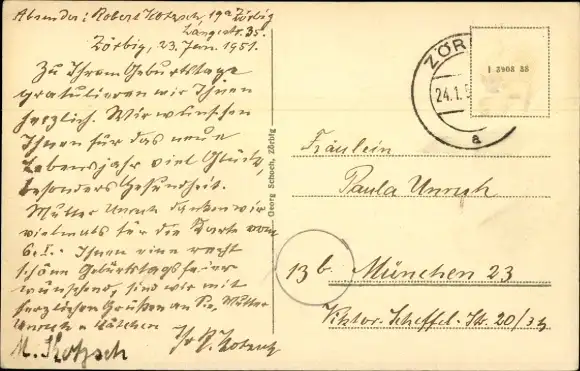 Absender: Robert Kotzsch, 19a Zörbig
Langestr. 35.
Zörbig, 23. Jan. 1951.
Zu Ihrem Geburtstage
gratulieren wir Ihnen
herzlich. Wir wünschen
Ihnen für das neue
Lebensjahr viel Glück,
besonders Gesundheit.
Mutter Unruh danken wir
vielmals für die Karte vom
6. I. Ihnen eine recht
schöne Geburtstagsfeier
wünschend, sind wir mit
herzlichen Grüßen an Sie, Mutter
Unruh u. Kätchen
Ihr R. Kotzsch
M. Kotzsch
Georg Schoch, Zörbig
ZÖR
24.1.5
a
I 3908 38
Fräulein
Paula Unruh
13b München 23
Viktor-Scheffel-Str. 20/